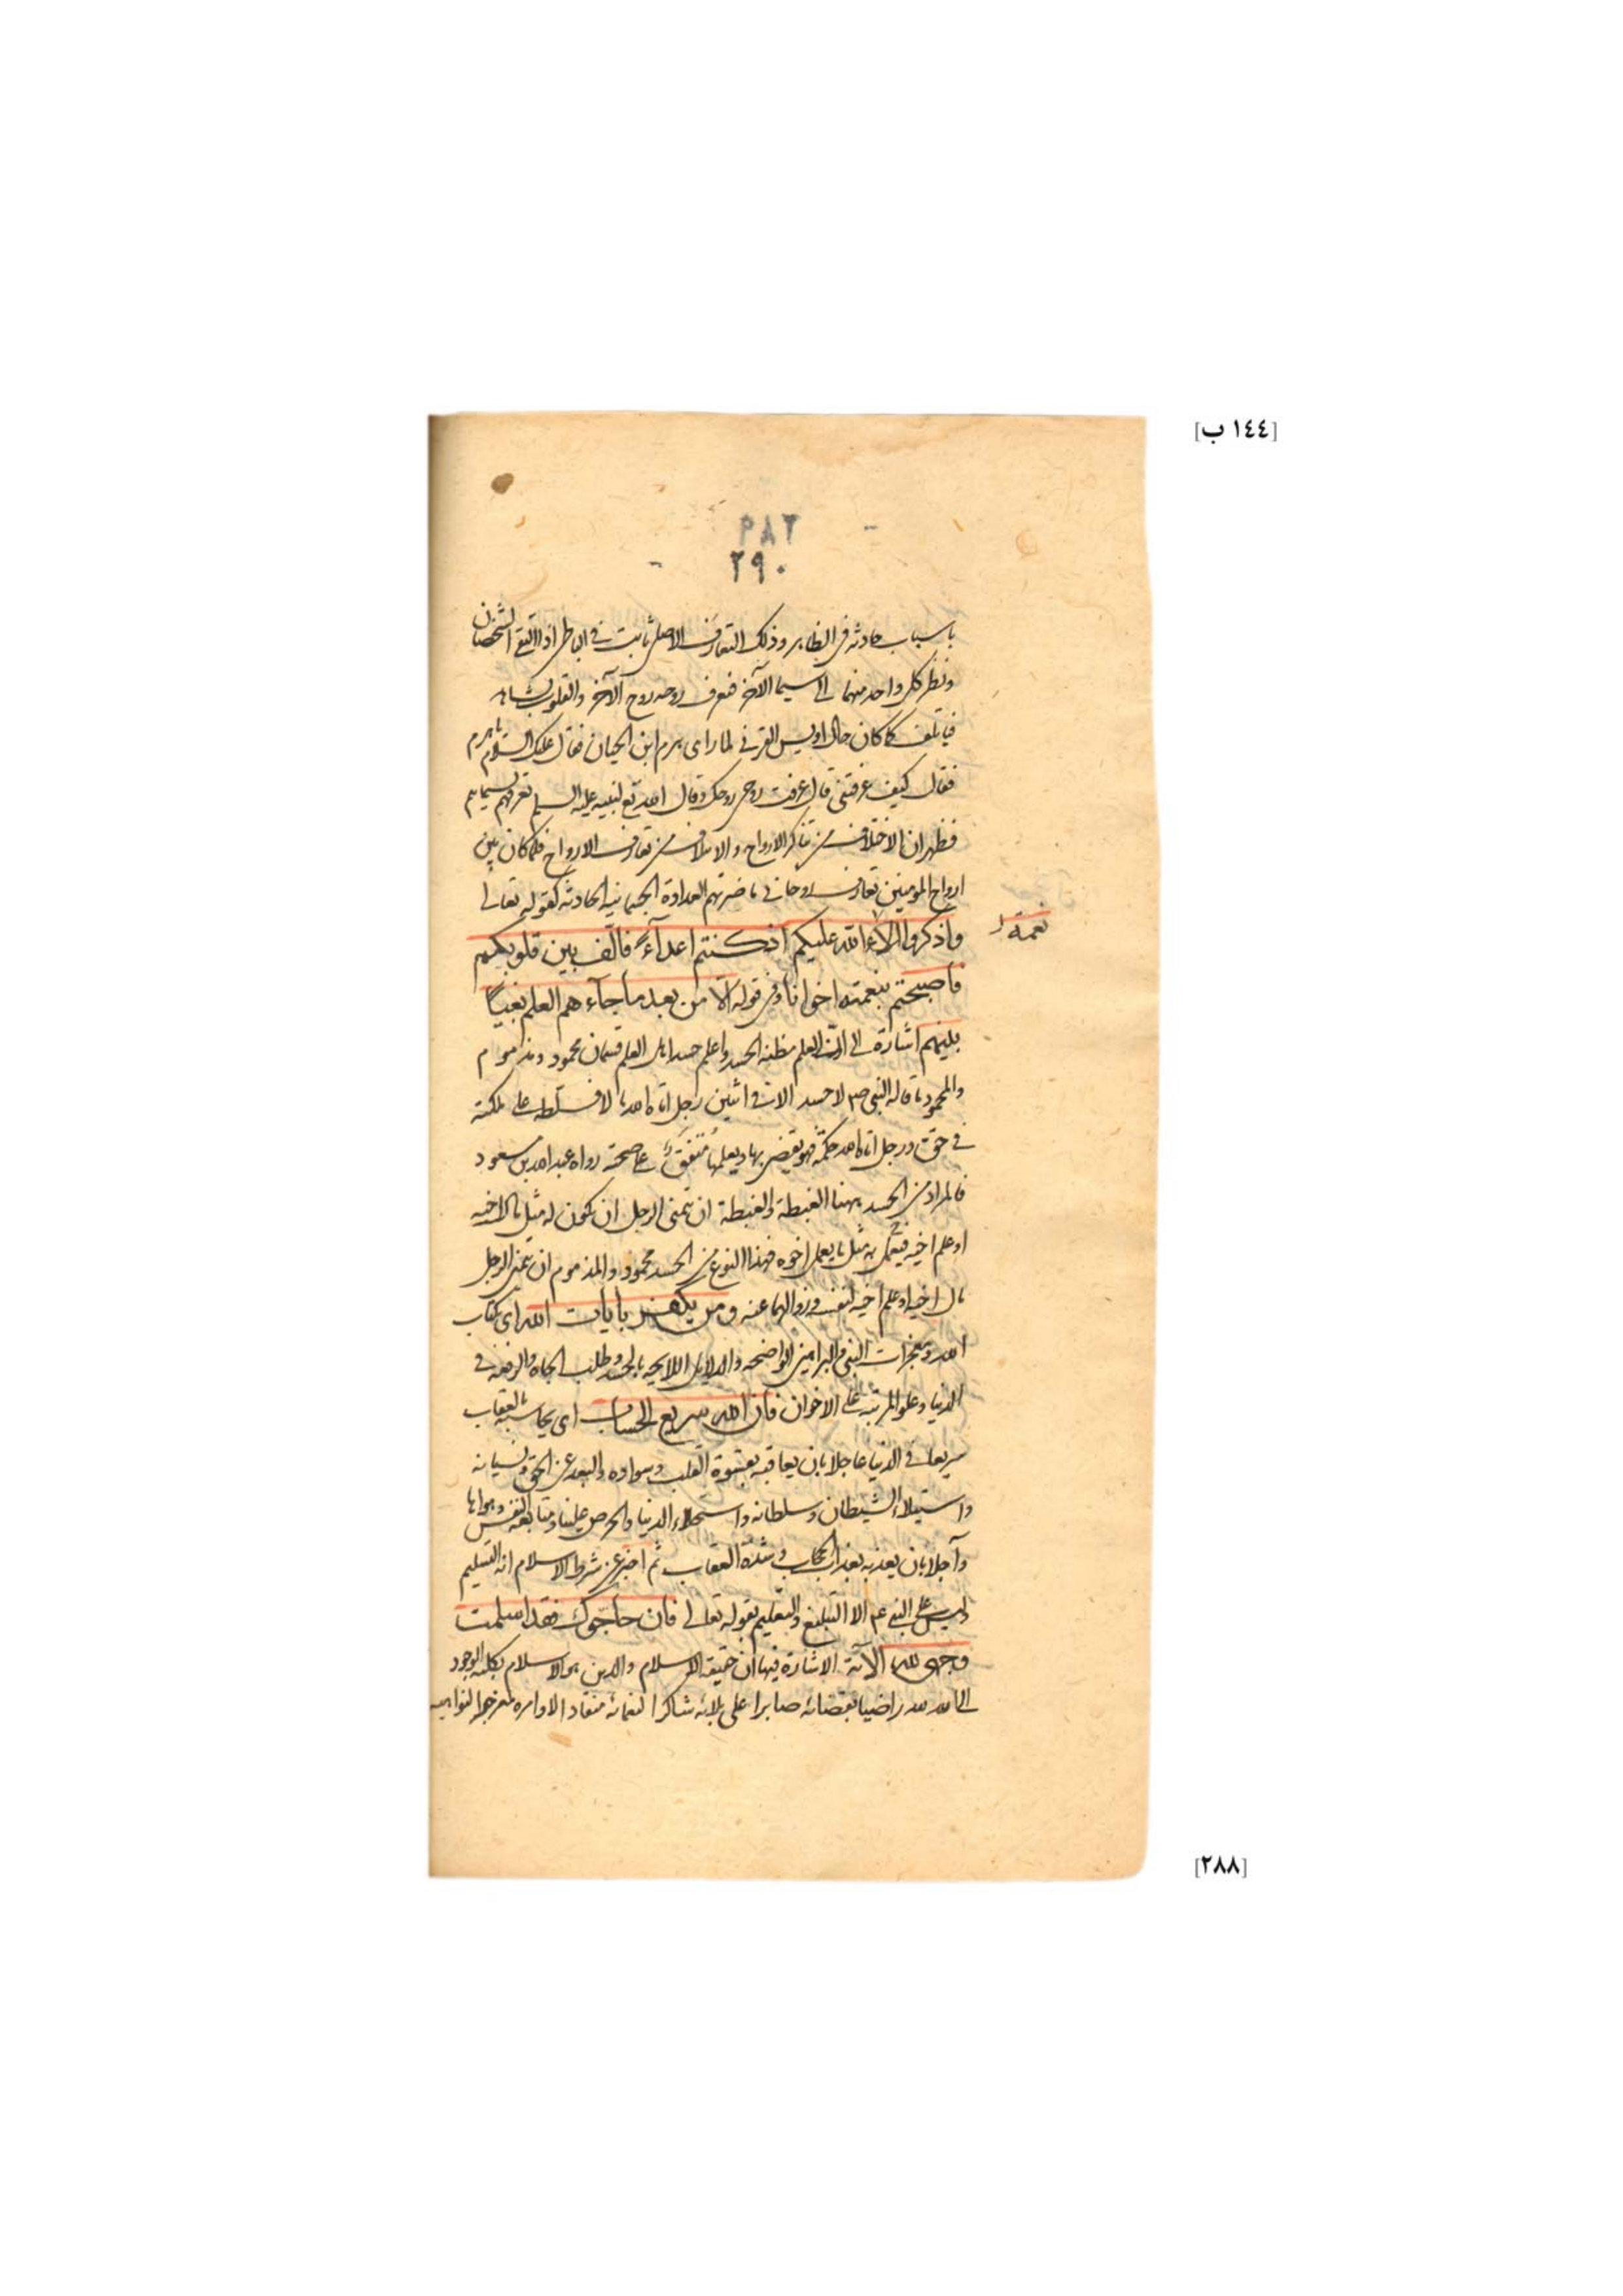 [١٤٤ ب]
٢٨٢
٢٩٠
باسباب حادثه فى الظاهر وذلك التعارف الاصلى ثابت فى الباطن اذا التقى الشخصان
ونظر كل واحد منهما الى سيما الآخر فتعرف روحه روح الآخر والقلوب تشاهد
فياتلف كما كان حال اويس القرنى لما راى هرم ابن الحيان فقال عليك السلام يا هرم
فقال كيف عرفتنى قال عرفت روحى روحك وقال الله تع لنبيه عليه السلم تعرفهم بسيماهم
فظهر ان الاختلاف من تناكر الارواح والايتلاف من تعارف الارواح فلما كان بين
ارواح المومنين تعارف روحانى ما ضرتهم العداوة الجسمانيه الحادثه كقوله تعالى
واذكروا الاء الله عليكم اذ كنتم اعدآءً فالف بين قلوبكم
نعمة
فاصبحتم بنعمته اخوانا وفى قوله الا من بعد ما جآءهم العلم بغيًا
بينهم اشارة الى ان العلم مظنه الحسد واعلم حسد اهل العلم قسمان محمود ومذموم
والمحمود ما قاله النبى صم لا حسد الا فى اثنين رجل اتاه الله مالا فسلطه على هلكته
فى حق ورجل اتاه الله حكمة فهو يقضى بها ويعلمها متفق على صحته رواه عبد الله بن مسعود
فالمراد من الحسد ههنا الغبطة والغبطة ان يتمنى الرجل ان يكون له مثل مال اخيه
او علم اخيه فيعمل به مثل ما يعمل اخوه فهذا النوع من الحسد محمود والمذموم ان يتمنى الرجل
مال اخيه او علم اخيه لنفسه وزوالهما عنه ومن يكفر بايات الله اى بكتاب
الله ومعجزات النبى والبراهين الواضحه والدلايل اللايحه بالحسد وطلب الجاه والرفعه فى
الدنيا وعلو المرتبه على الاخوان فان الله سريع الحساب اى يحاسبه بالعقاب
سريعا فى الدنيا عاجلا بان يعاقبه بقسوة القلب وسواده والبعد عن الحق ونسيانه
واستيلاء الشيطان وسلطانه واستحلاء الدنيا والحرص عليها ومتابعه النفس وهواها
وآجلا بان يعذبه بعذاب الحجاب وشدة العقاب ثم اخبر عن شرط الاسلام انه التسليم
وليس على النبى عم الا التبليغ والتعليم بقوله تعالى فان حاجوك فقد اسلمت
وجهى لله الآية الاشارة فيها ان حقيقه الاسلام والدين هو الاسلام بكليه الوجود
الى الله لله راضيا بقضائه صابرا على بلائه شاكرا لنعمائه منقادا لاوامره منزجرا لنواهيه
[٢٨٨]